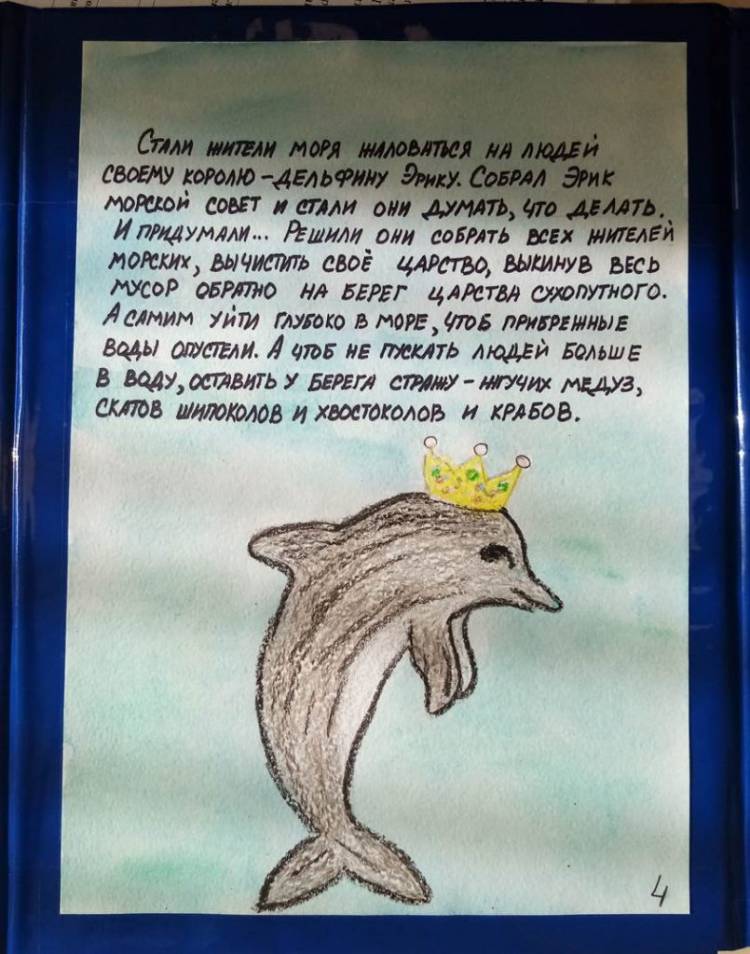 Стали жители моря жаловаться на людей
своему королю - дельфину Эрику. Собрал Эрик
морской совет и стали они думать, что делать.
И придумали... Решили они собрать всех жителей
морских, вычистить своё царство, выкинув весь
мусор обратно на берег царства сухопутного.
А самим уйти глубоко в море, чтоб прибрежные
воды опустели. А чтоб не пускать людей больше
в воду, оставить у берега стражу - жгучих медуз,
скатов шипоколов и хвостоколов и крабов.
4